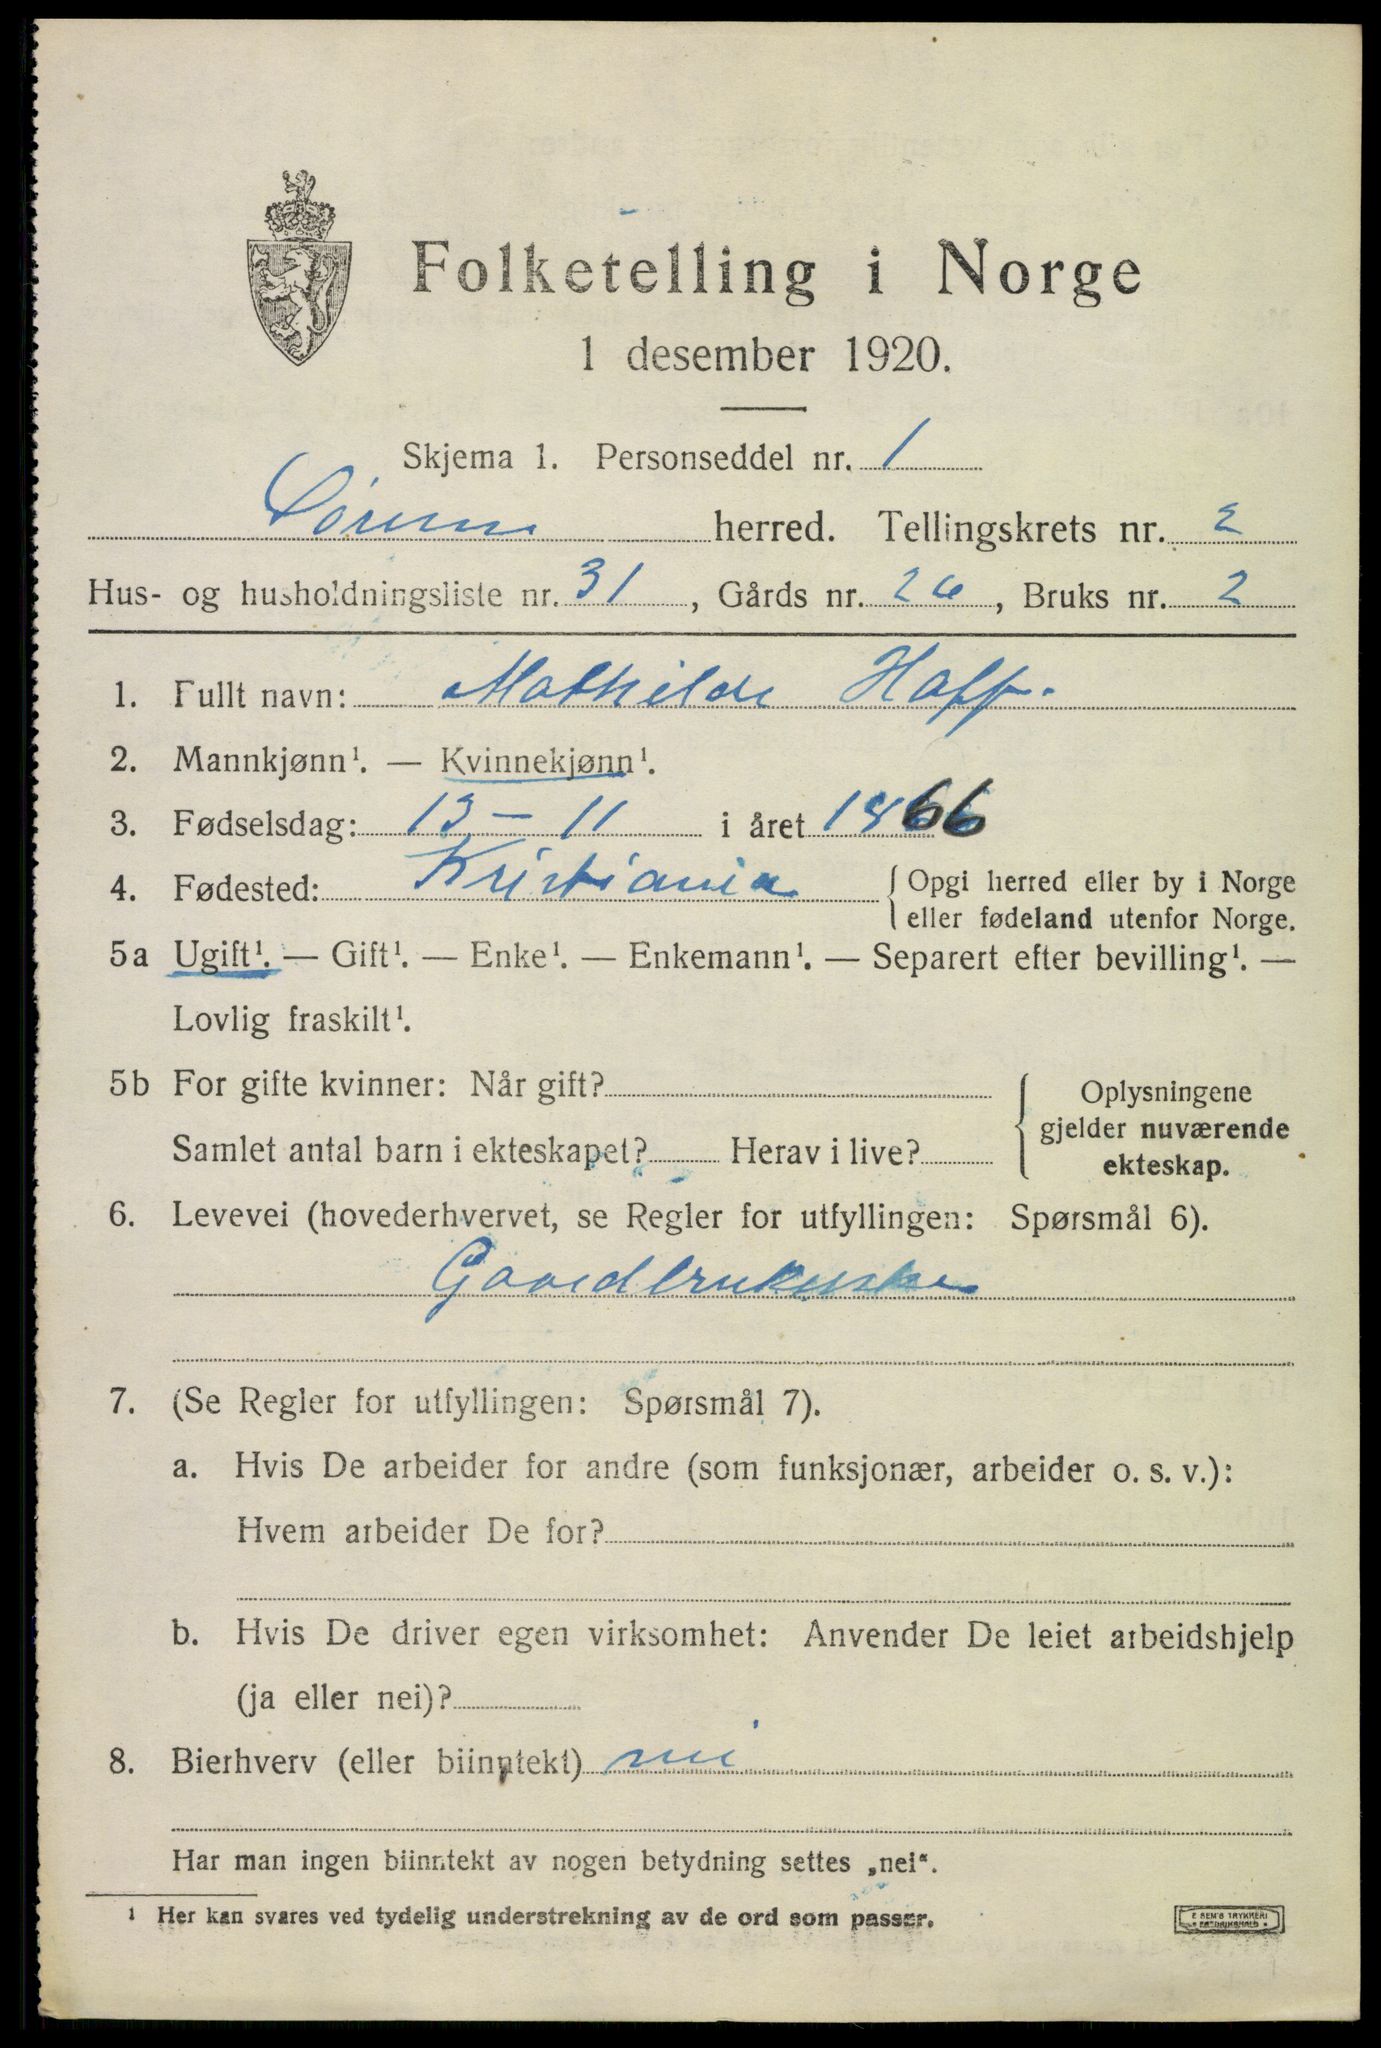 Folketelling i Norge
1 desember 1920.
Skjema 1. Personseddel nr. 1
Sørum herred. Tellingskrets nr. 2
Hus- og husholdningsliste nr. 31, Gårds nr. 26, Bruks nr. 2
1. Fullt navn: Mathilde Hoff.
2. Mannkjønn¹. — Kvinnekjønn¹.
3. Fødselsdag: 13 - 11 i året 1866
4. Fødested: Kristiania { Opgi herred eller by i Norge
eller fødeland utenfor Norge.
5a Ugift¹. — Gift¹. — Enke¹. — Enkemann¹. — Separert efter bevilling¹. —
Lovlig fraskilt¹.
5b For gifte kvinner: Når gift?
Samlet antal barn i ekteskapet? Herav i live?
Oplysningene
gjelder nuværende
ekteskap.
6. Levevei (hovederhvervet, se Regler for utfyllingen: Spørsmål 6).
7. (Se Regler for utfyllingen: Spørsmål 7).
a. Hvis De arbeider for andre (som funksjonær, arbeider o. s. v.):
Hvem arbeider De for?
b. Hvis De driver egen virksomhet: Anvender De leiet arbeidshjelp
(ja eller nei)?
8. Bierhverv (eller biinntekt) nei
Har man ingen biinntekt av nogen betydning settes „nei“.
¹ Her kan svares ved tydelig understrekning av de ord som passer.
E SEM'S TRYKKERI
• FREDRIKSHALD •